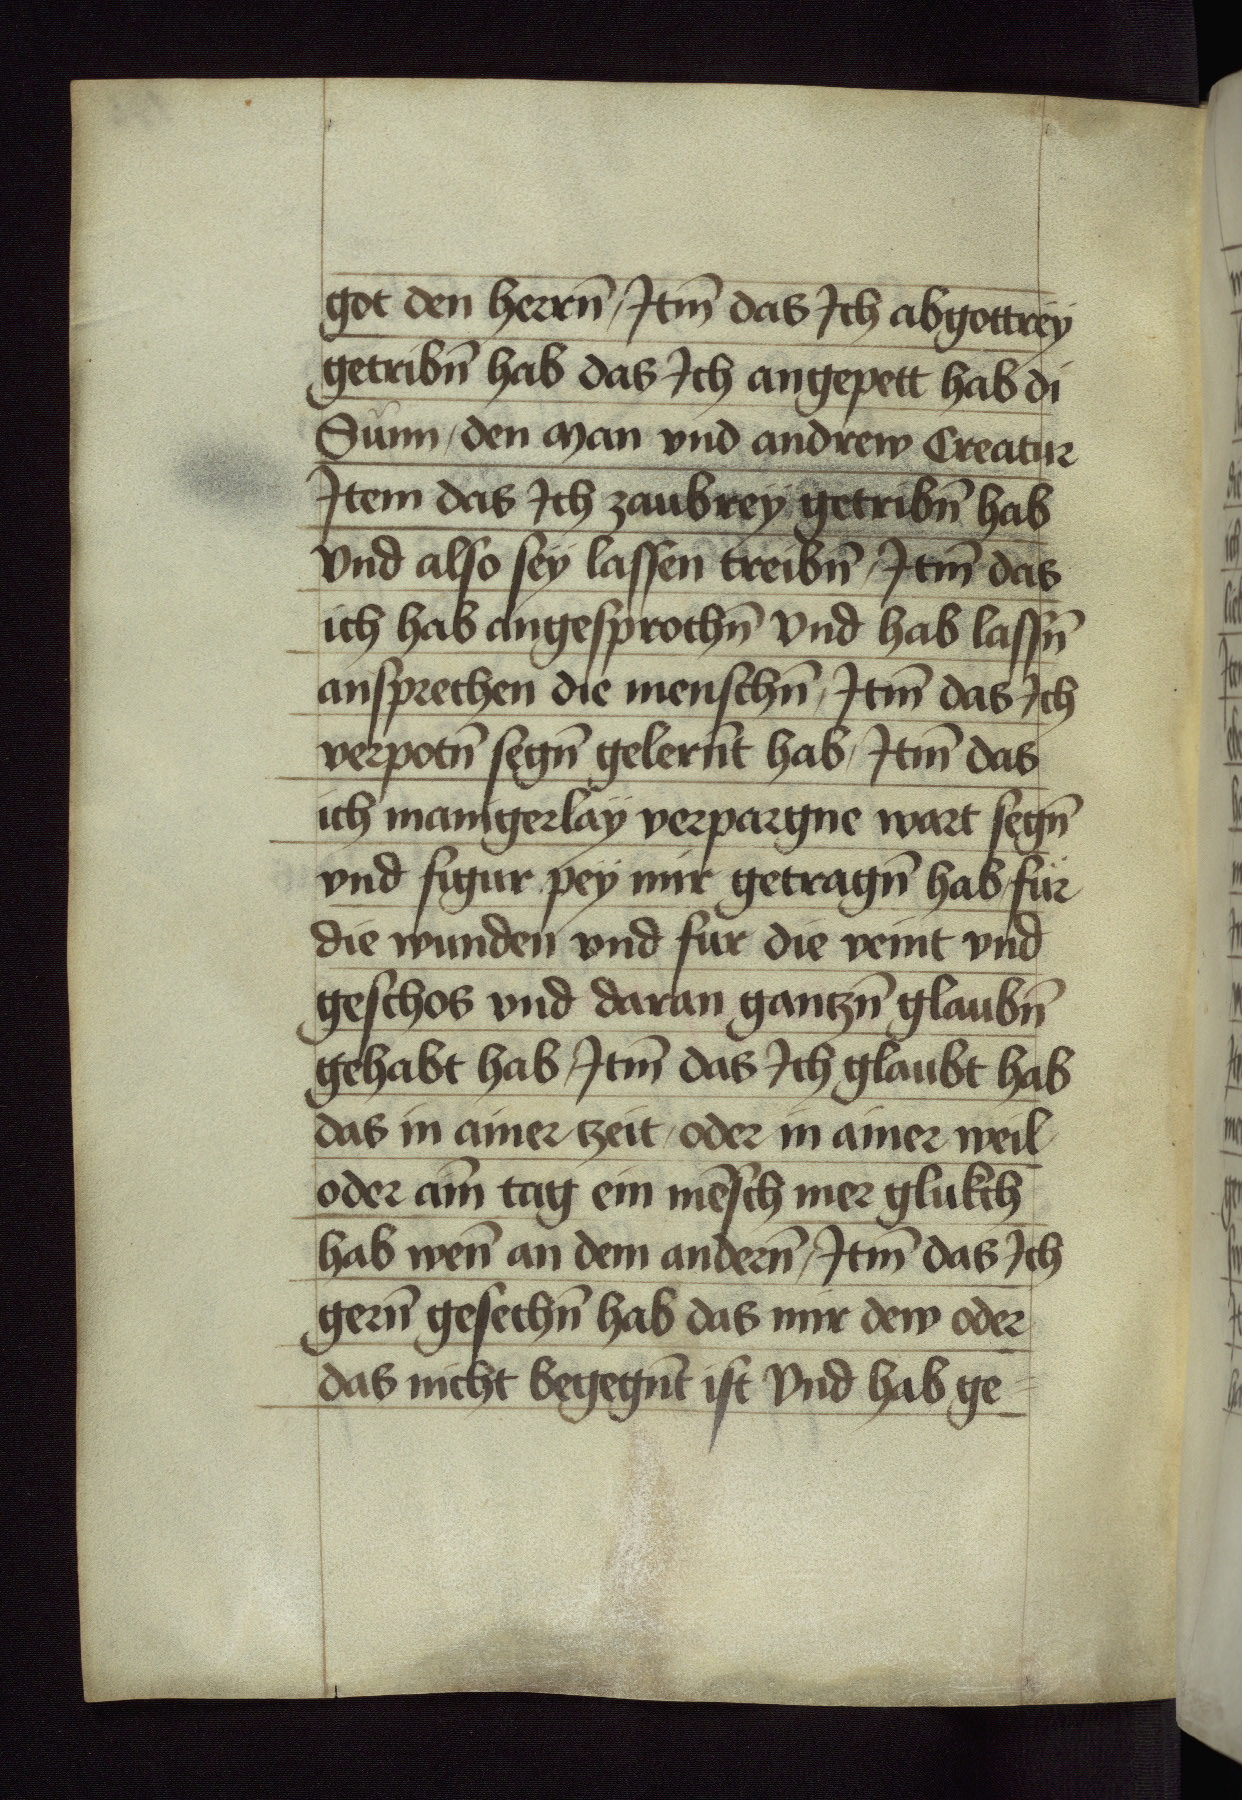 got den herrn̄ / Itm̄ das Ich abgottreÿ
getribn̄ hab das Ich angepett hab di
Sunn / den Man vnd andrew Creatur
Item das Ich zaubreÿ getribn̄ hab
vnd also seÿ lassen treibn̄ / Itm̄ das
ich hab angesprochn̄ vnd hab lassn̄
ansprechen die menschn̄ / Itm̄ das Ich
verpotn̄ segn̄ gelern̄t hab / Itm̄ das
ich manigerläÿ verpargne wart segn̄
vnd figur peÿ mir getragn̄ hab für
die wunden vnd für die veint vnd
geschos vnd daran gantzn̄ glaubn̄
gehabt hab / Itm̄ das Ich glaubt hab
das in ainer tzeit / oder in ainer weil
oder aim̄ tag ein mēsch mer glukch
hab wen̄ an dem andern̄ / Itm̄ das Ich
gern̄ gesechn̄ hab das mir dew oder
das nicht begegn̄t ist vnd hab ge=